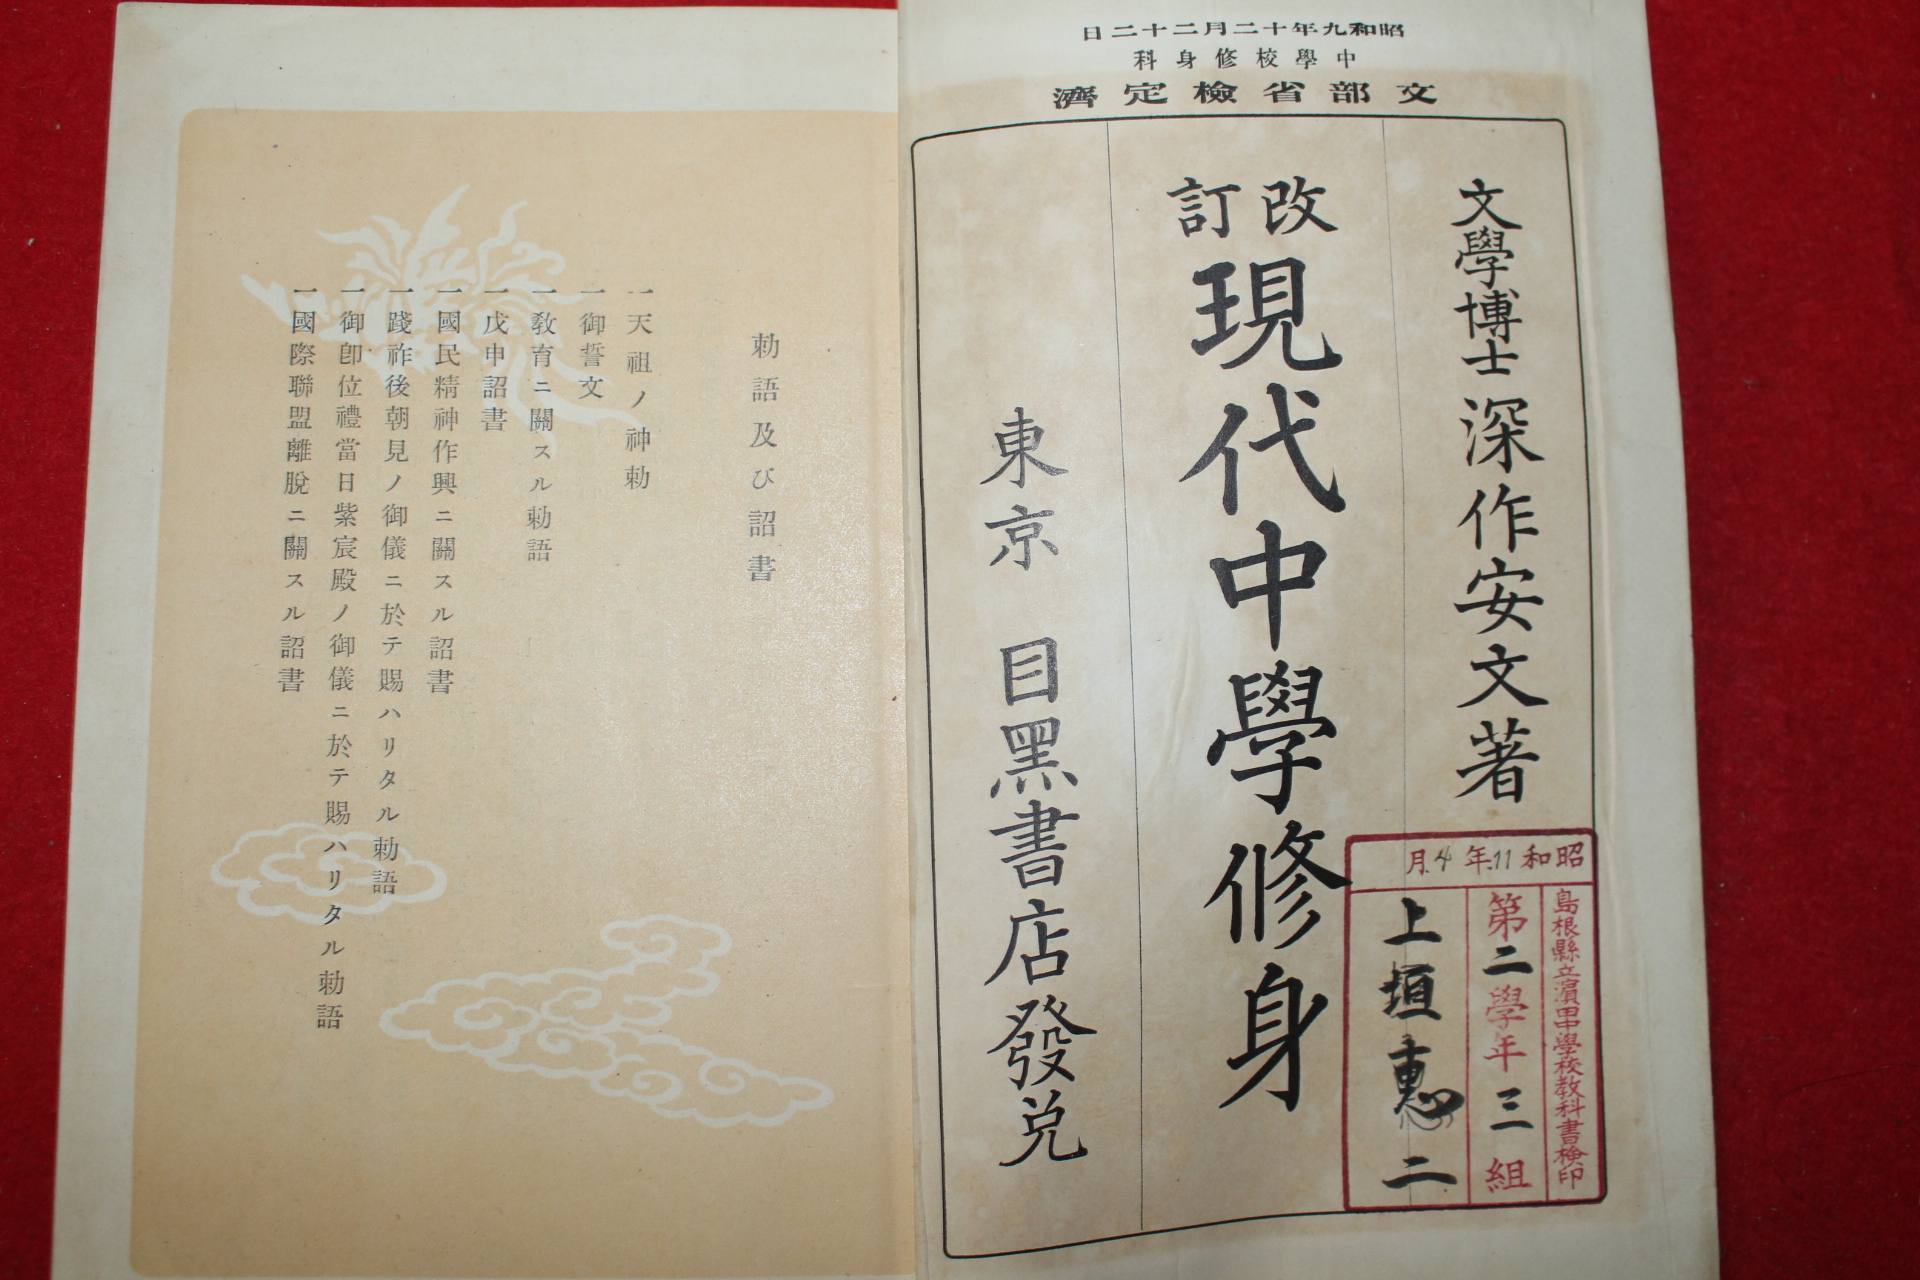 昭和九年十二月二十二日
中學校修身科
文部省檢定濟
文學博士 深作安文著
改訂
現代中學修身
東京 目黑書店發兌
昭和11年4月
島根縣立濱田中學校教科書檢印
第二學年三組
上垣惠二
勅語及び詔書
一 天祖ノ神勅
一 御誓文
一 敎育ニ關スル勅語
一 戊申詔書
一 國民精神作興ニ關スル詔書
一 踐祚後朝見ノ御儀ニ於テ賜ハリタル勅語
一 御卽位禮當日紫宸殿ノ御儀ニ於テ賜ハリタル勅語
一 國際聯盟離脫ニ關スル詔書